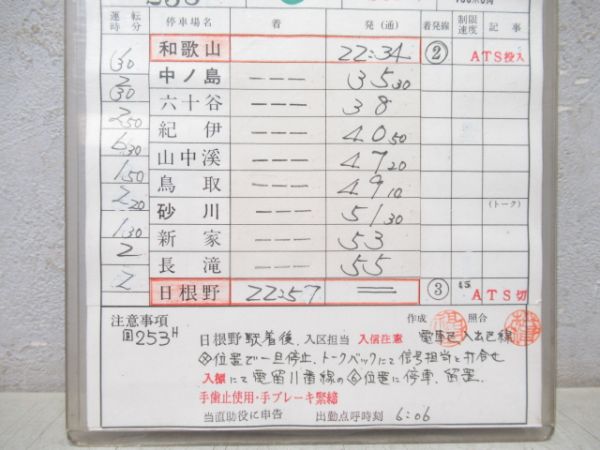 運転時分 停車場名 着 発(通) 着発線 制限速度 記事
和歌山 22:34 ② ATS投入
1/30 中ノ島 --- 35 30
2/30 六十谷 --- 38
2 50 紀伊 --- 40 50
6 30 山中溪 --- 47 20
1 50 鳥取 --- 49 10
2 20 砂川 --- 51 30 (トーク)
1 30 新家 --- 53
2 長滝 --- 55
2 日根野 22:57 = ③ 45 ATS切
注意事項 作成 照合
253H 日根野駅着後、入区担当 入信注意 電車区入出区線
位置で一旦停止、トークバックにて信号担当と打合せ
入標にて電留11番線の⑥位置に停車、留置.
手歯止使用・手ブレーキ緊縮
当直助役に申告 出勤点呼時刻 6:06